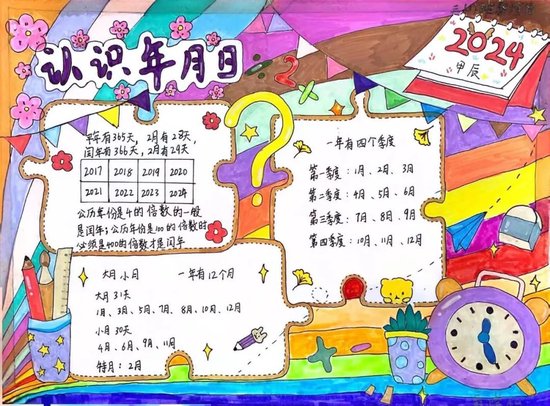 认识年月日
2024
甲辰
平年有365天，2月有28天
闰年有366天，2月有29天
2017 2018 2019 2020
2021 2022 2023 2024
公历年份是4的倍数的一般
是闰年；公历年份是100的倍数时
必须是400的倍数才是闰年
一年有四个季度
第一季度：1月、2月、3月
第二季度：4月、5月、6月
第三季度：7月、8月、9月
第四季度：10月、11月、12月
大月 小月 一年有12个月
大月 31天
1月、3月、5月、7月、8月、10月、12月
小月 30天
4月、6月、9月、11月
特月：2月